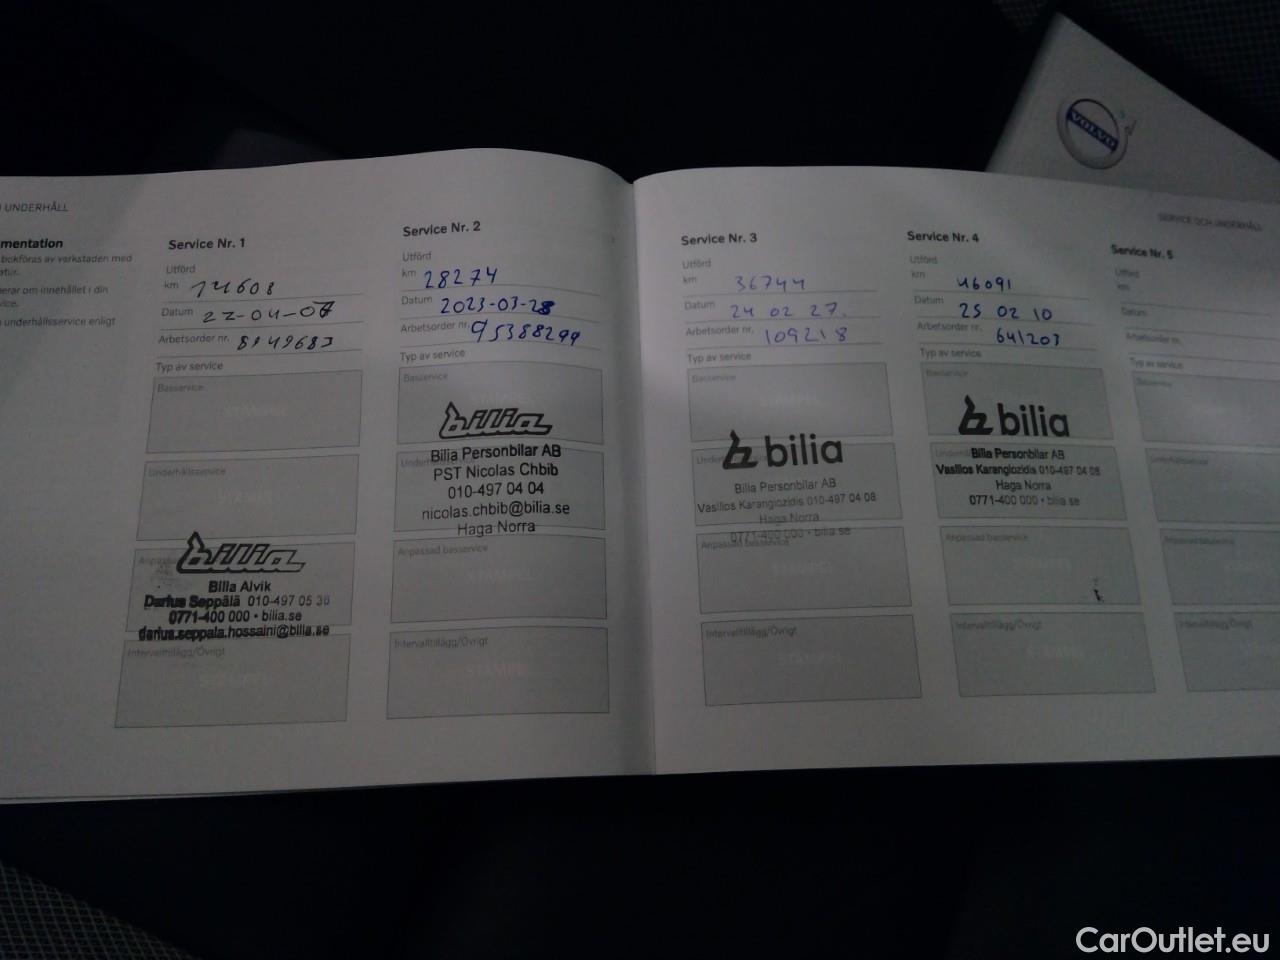 UNDERHÅLL
mentation
bokföras av verkstaden med
atur.
nerar om innehållet i din
vice.
underhållsservice enligt
Service Nr. 1
Utförd
km 14608
Datum 22-04-07
Arbetsorder nr. 8949683
Typ av service
Basservice
STÄMPEL
Underhållsservice
STÄMPEL
bilia
Bilia Alvik
Darius Seppälä 010-497 05 36
0771-400 000 • bilia.se
darius.seppala.hossaini@bilia.se
Intervalltillägg/Övrigt
STÄMPEL
Service Nr. 2
Utförd
km 28274
Datum 2023-03-28
Arbetsorder nr. 95388299
Typ av service
Basservice
bilia
Bilia Personbilar AB
PST Nicolas Chbib
010-497 04 04
nicolas.chbib@bilia.se
Haga Norra
Anpassad basservice
STÄMPEL
Intervalltillägg/Övrigt
STÄMPEL
SERVICE OCH UNDERHÅLL
Service Nr. 3
Utförd
km 36744
Datum 24 02 27.
Arbetsorder nr. 109218
Typ av service
Basservice
STÄMPEL
bilia
Bilia Personbilar AB
Vasilios Karangiozidis 010-497 04 08
Haga Norra
0771-400 000 • bilia.se
Anpassad basservice
STÄMPEL
Intervalltillägg/Övrigt
STÄMPEL
Service Nr. 4
Utförd
km 46091
Datum 25 02 10
Arbetsorder nr. 641203
Typ av service
Basservice
bilia
Bilia Personbilar AB
Vasilios Karangiozidis 010-497 04 08
Haga Norra
0771-400 000 • bilia.se
Anpassad basservice
STÄMPEL
Intervalltillägg/Övrigt
STÄMPEL
Service Nr. 5
Utförd
km
Datum
Arbetsorder nr.
Typ av service
Basservice
Underhållsservice
Anpassad basservice
Intervalltillägg/Övrigt
VOLVO
CarOutlet.eu